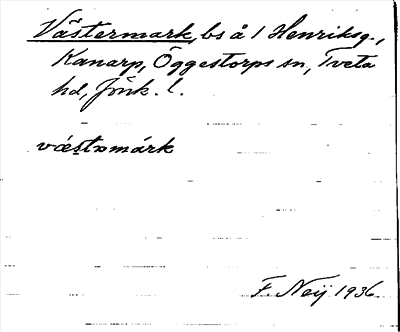 Västermark, bs å 1 Henriksg.,
Kanarp, Öggestorps sn, Tveta
hd, Jönk. l.
væ̀stɒmárk
F. Neij 1936